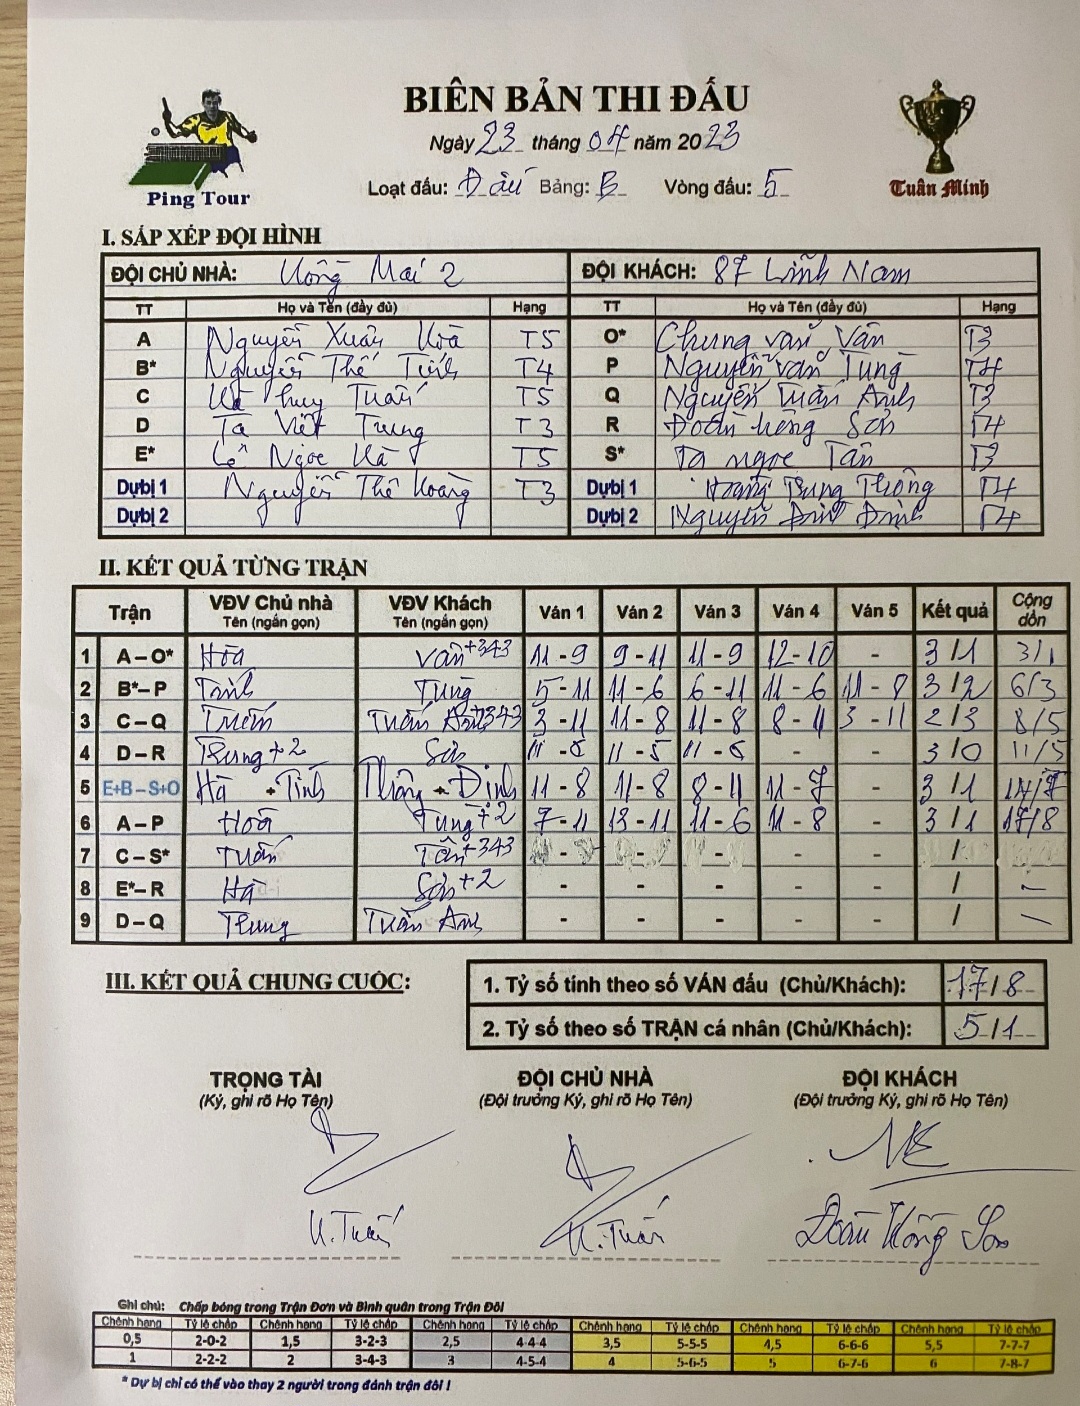 BIÊN BẢN THI ĐẤU
Ngày 23 tháng 04 năm 2023
Loạt đấu: Đấu Bảng: B Vòng đấu: 5
Ping Tour
Tuấn Minh
I. SẮP XẾP ĐỘI HÌNH
ĐỘI CHỦ NHÀ: Hoàng Mai 2 ĐỘI KHÁCH: 87 Lĩnh Nam
TT Họ và Tên (đầy đủ) Hạng TT Họ và Tên (đầy đủ) Hạng
A Nguyễn Xuân Hoà T5 O* Chung Văn Vân T3
B* Nguyễn Thế Tính T4 P Nguyễn Văn Tùng T4
C Hà Huy Tuấn T5 Q Nguyễn Tuấn Anh T3
D Tạ Việt Trung T3 R Đoàn Hồng Sơn T4
E* Lê Ngọc Hà T5 S* Tạ Ngọc Tân T3
Dự bị 1 Nguyễn Thế Hoàng T3 Dự bị 1 Hoàng Trung Thông T4
Dự bị 2 Dự bị 2 Nguyễn Đình T4
II. KẾT QUẢ TỪNG TRẬN
Trận VĐV Chủ nhà Tên (ngắn gọn) VĐV Khách Tên (ngắn gọn) Ván 1 Ván 2 Ván 3 Ván 4 Ván 5 Kết quả Cộng dồn
1 A – O* Hoà Vân+343 11 - 9 9 - 11 11 - 9 12 - 10 - 3 / 1 3/1
2 B*– P Tính Tùng 5 - 11 11 - 6 6 - 11 11 - 6 11 - 8 3 / 2 6/3
3 C – Q Tuấn Tuấn Anh+343 3 - 11 11 - 8 11 - 8 8 - 11 3 - 11 2 / 3 8/5
4 D – R Trung+2 Sơn 11 - 5 11 - 5 11 - 6 - - 3 / 0 11/5
5 E+B – S+O Hà + Tính Thông + Định 11 - 8 11 - 8 8 - 11 11 - 7 - 3 / 1
6 A – P Hoà Tùng+2 7 - 11 13 - 11 11 - 6 11 - 8 - 3 / 1 17/8
7 C – S* Tuấn Tân+343 - - - - - /
8 E*– R Hà Sơn+2 - - - - - / –
9 D – Q Trung Tuấn Anh - - - - - / –
III. KẾT QUẢ CHUNG CUỘC:
1. Tỷ số tính theo số VÁN đấu (Chủ/Khách): 17 / 8
2. Tỷ số theo số TRẬN cá nhân (Chủ/Khách): 5 / 1
TRỌNG TÀI ĐỘI CHỦ NHÀ ĐỘI KHÁCH
(Ký, ghi rõ Họ Tên) (Đội trưởng Ký, ghi rõ Họ Tên) (Đội trưởng Ký, ghi rõ Họ Tên)
H. Tuấn H. Tuấn Đoàn Hồng Sơn
Ghi chú: Chấp bóng trong Trận Đơn và Bình quân trong Trận Đôi
Chênh hạng Tỷ lệ chấp Chênh hạng Tỷ lệ chấp Chênh hạng Tỷ lệ chấp Chênh hạng Tỷ lệ chấp Chênh hạng Tỷ lệ chấp Chênh hạng Tỷ lệ chấp
0,5 2-0-2 1,5 3-2-3 2,5 4-4-4 3,5 5-5-5 4,5 6-6-6 5,5 7-7-7
1 2-2-2 2 3-4-3 3 4-5-4 4 5-6-5 5 6-7-6 6 7-8-7
* Dự bị chỉ có thể vào thay 2 người trong đánh trận đôi !